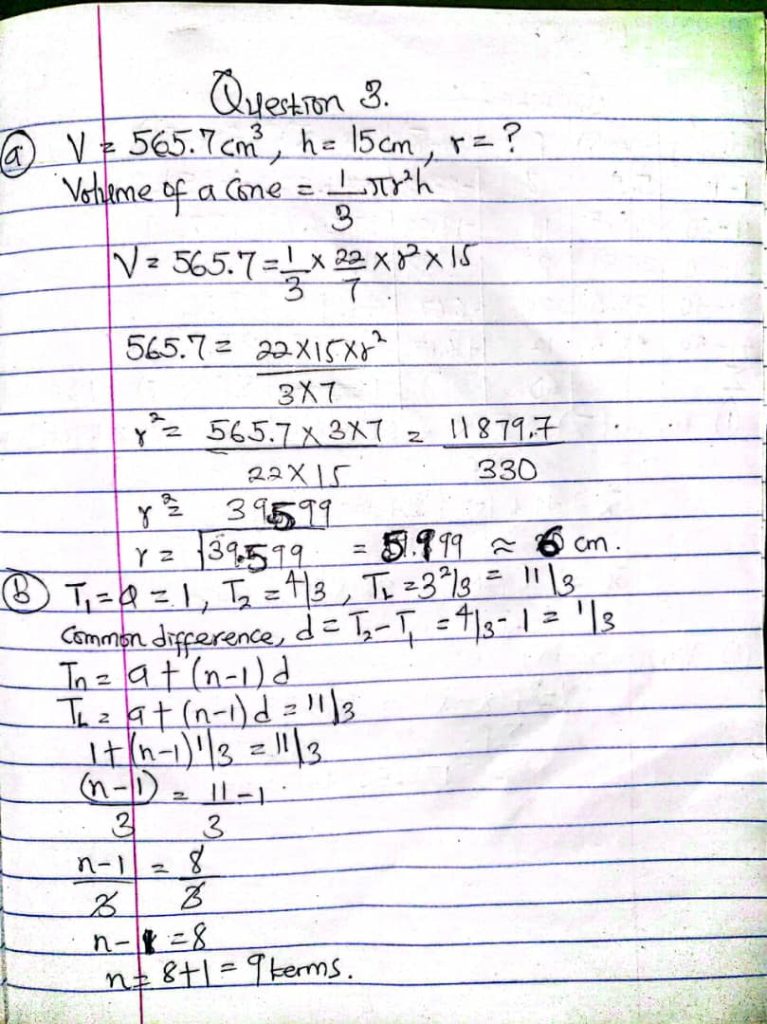 Question 3.
(a) V = 565.7cm³, h = 15cm, r = ?
Volume of a Cone = 1/3 πr²h
V = 565.7 = 1/3 × 22/7 × r² × 15
565.7 = 22×15×r² / 3×7
r² = 565.7 × 3×7 / 22×15 = 11879.7 / 330
r² = 39599
r = √39.599 = 51.999 ≈ 6 cm.
(b) T₁ = a = 1, T₂ = 4/3, TL = 3 2/3 = 11/3
Common difference, d = T₂ - T₁ = 4/3 - 1 = 1/3
Tn = a + (n-1)d
TL = a + (n-1)d = 11/3
1 + (n-1)1/3 = 11/3
(n-1)/3 = 11/3 - 1
n-1/3 = 8/3
n-1 = 8
n = 8+1 = 9 terms.